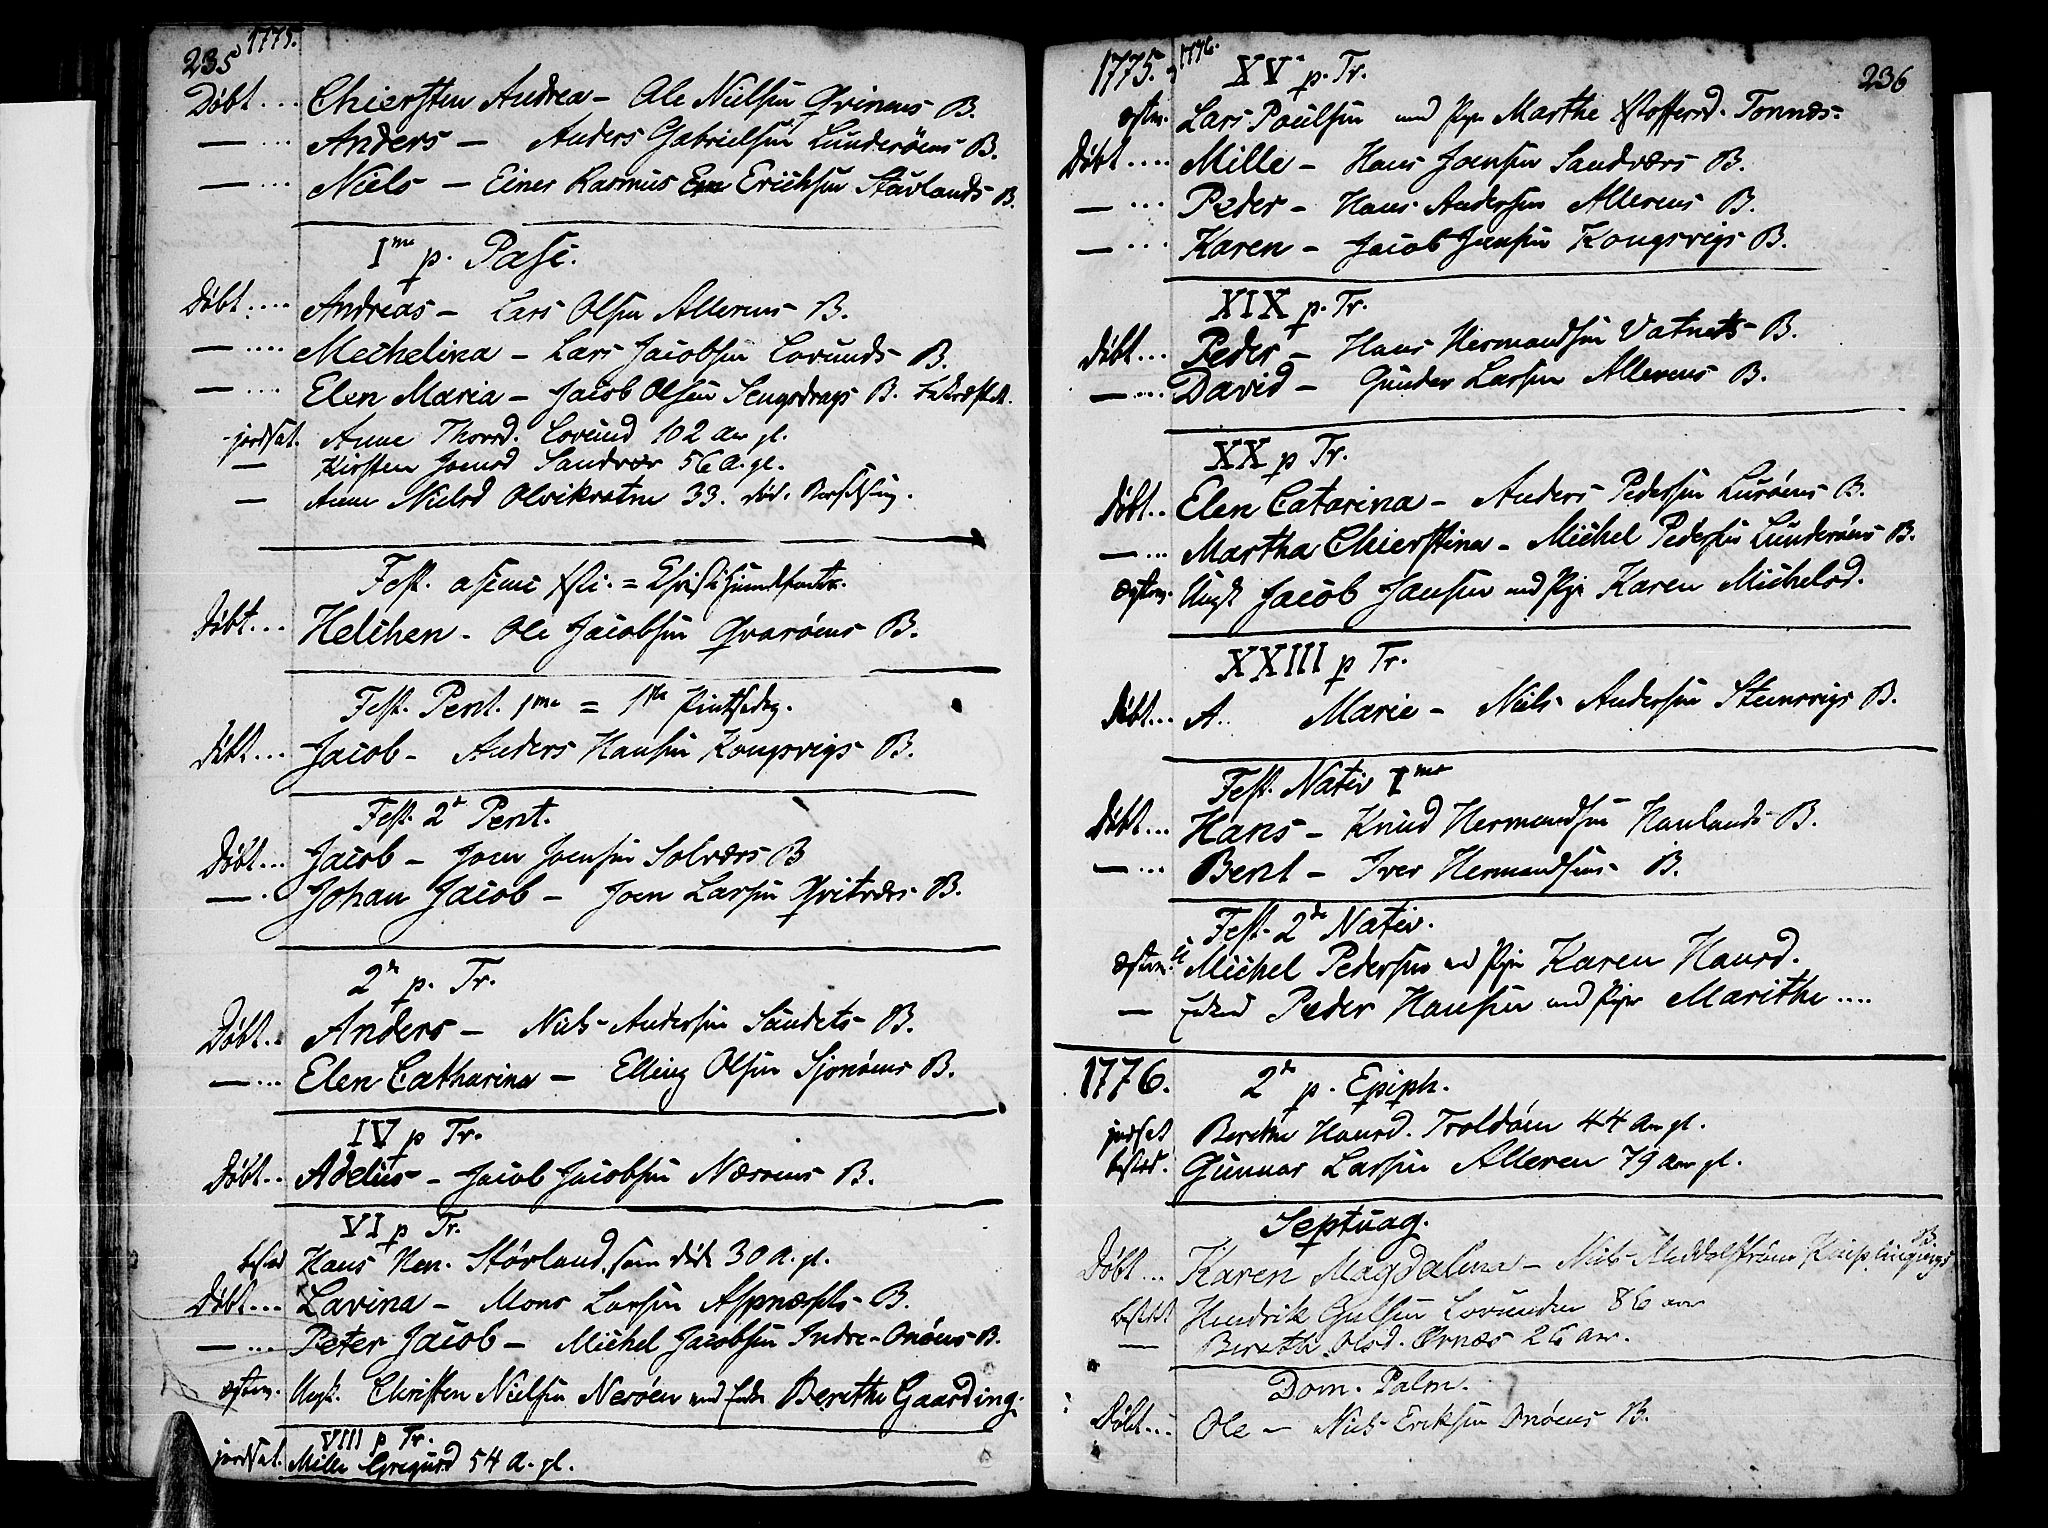 235 1775.
Döbt... Chiersten Andrea - Ole Nielsen Qvinens B.
— ... Anders — Anders Gabrielsen Lunderöens B.
— ... Niels — Einer Rasmus Erichsen Stavlands B.
I me p. Pasc.
Döbt.... Andreas - Lars Olsen Allerens B.
— .... Mechelina - Lars Jacobsen Lovunds B.
— ... Elen Maria - Jacob Olsen Sengsdrags B.
jordsat. Anne Thorsd. Lovund 102 aar gl.
— Kirsten Joensd Sandvær 56 a. gl.
— Anne Nielsd Olvikvatne 33.
Fest. ascens Xsti. = Christi himmelfartz.
Döbt... Helchen - Ole Jacobsen Qvaröens B.
Fest. Pent. 1me = 1ste Pintsedag.
Döbt... Jacob - Anders Hansen Kongsvigs B.
Fest. 2a Pent.
Döbt... Jacob - Joen Joensen Solværs B
— . Johan Jacob - Joen Larsen Qvitværs B.
2n p. Tr.
Döbt.. Anders — Niels Andersen Sandets B.
— ... Elen Catharina — Elling Olsen Sjonöens B.
IV p Tr.
Döbt.. Adelus - Jacob Jacobsen Næsöens B.
VI p Tr.
Hans Hen. Störland, som döde 30 a. gl.
Döbt... Lavina - Mons Larsen Aspnæsets B.
— ... Peter Jacob - Michel Jacobsen Indre-Onöens B.
Ungk. Christen Nielsen Nesöen med Enke Berethe Gaarding.
VIII p Tr.
jordsat. Mille Gregersd 54 a. gl.
1775. 1776. XV p. Tr. 236
Lars Paulsen med Pige Marthe Xstoffersd. Tonnæs.
Döbt.... Mille - Hans Joensen Sandværs B.
— ... Peder - Hans Andersen Allerens B.
— ... Karen - Jacob Jensen Kongsvigs B.
XIX p. Tr.
Döbt... Peder - Hans Hermandsen Vatnets B.
— ... David - Gunder Larsen Allerens B.
XX p Tr.
Döbt.. Elen Catarina - Anders Pedersen Luröens B.
— ... Martha Chierstina - Michel Pedersen Lunderöens B.
Ungk Jacob Jansen med Pige Karen Michelsd.
XXIII p Tr.
Döbt... A.. Marie - Niels Andersen Stensvigs B.
Fest. Nativ Ime
Döbt... Hans - Knud Hermandsen Haulands B.
— ... Bent - Iver Hermandsens B.
Fest. 2de Nativ.
Michel Pedersen med Pige Karen Hansd.
— Enkemd Peder Hansen med Pige Marithe ....
1776. 2n p. Epiph.
jordsat Berethe Hansd. Troldöen 44 aar gl.
Gunnar Larsen Alleren 79 aar gl.
Septuag.
Döbt... Karen Magdalena - Niels B.
Hendrik Lovunden 86 aar
— Bereth Olsd. Ørnæs 26 aar.
Dom. Palm.
Döbt... Ole - Niels Eriksen Onöens B.